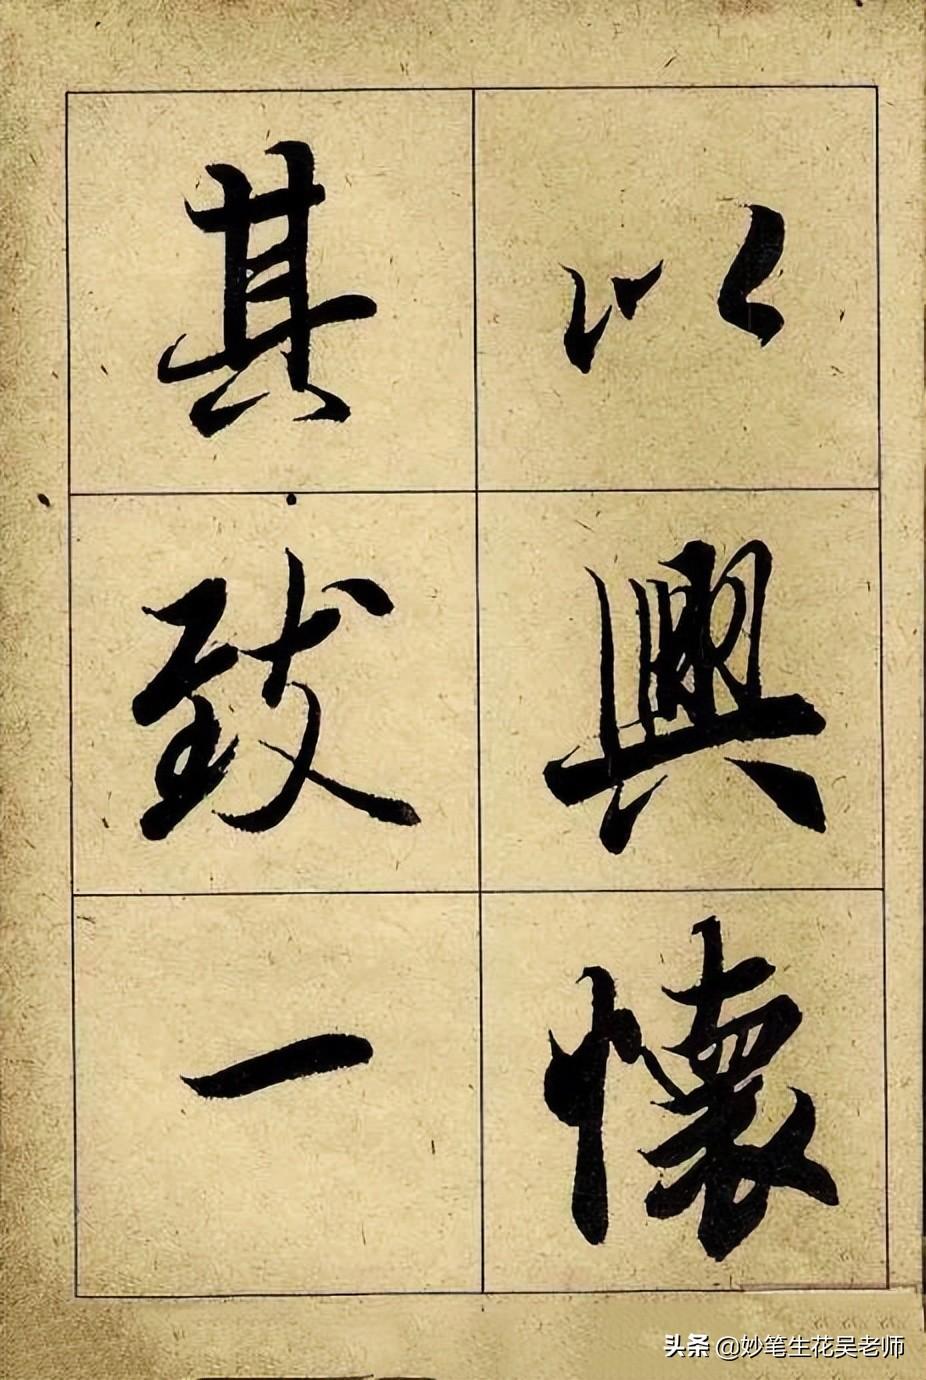 以興懷
其致一
头条 @妙笔生花吴老师